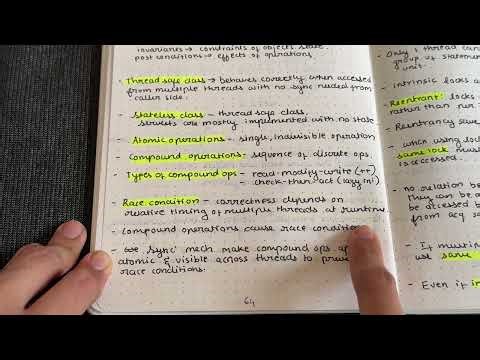 invariants → constraints of objects state
post conditions → effects of operations
Thread safe class → behaves correctly when accessed
from multiple threads with no sync needed from
caller side.
- Stateless class - thread safe class.
servlets are mostly implemented with no state
Atomic operations - single, indivisible operation
- Compound operations - sequence of discrete ops.
Types of compound ops - read-modify-write (++)
- check-then-act (lazy ini)
Race condition - correctness depends on
relative timing of multiple threads at runtime
- Compound operations cause race condition
- use sync mech make compound ops
atomic & visible across threads to
race conditions.
64
- Only 1 thread can
group of statement
unit.
- intrinsic locks a
Reentrant: locks
rather than
- Reentrancy save
- when using lock
same lock must
is accessed.
- no relation be
They can be a
be accessed b
from acq
- If multip
use same
- Even if i